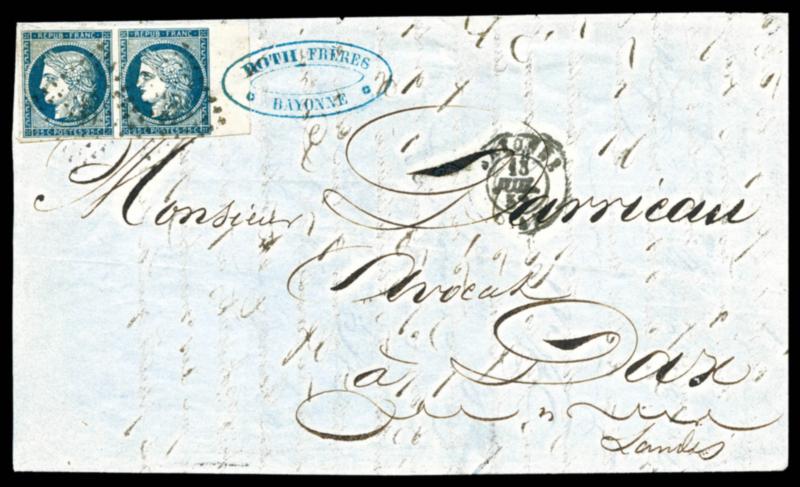 REPUB FRANC REPUB FRANC
25 C POSTES 25 C 25 C POSTES 25 C
ROTH FRÈRES
BAYONNE
13
Monsieur Darricau
Avocat
à Dax
Landes